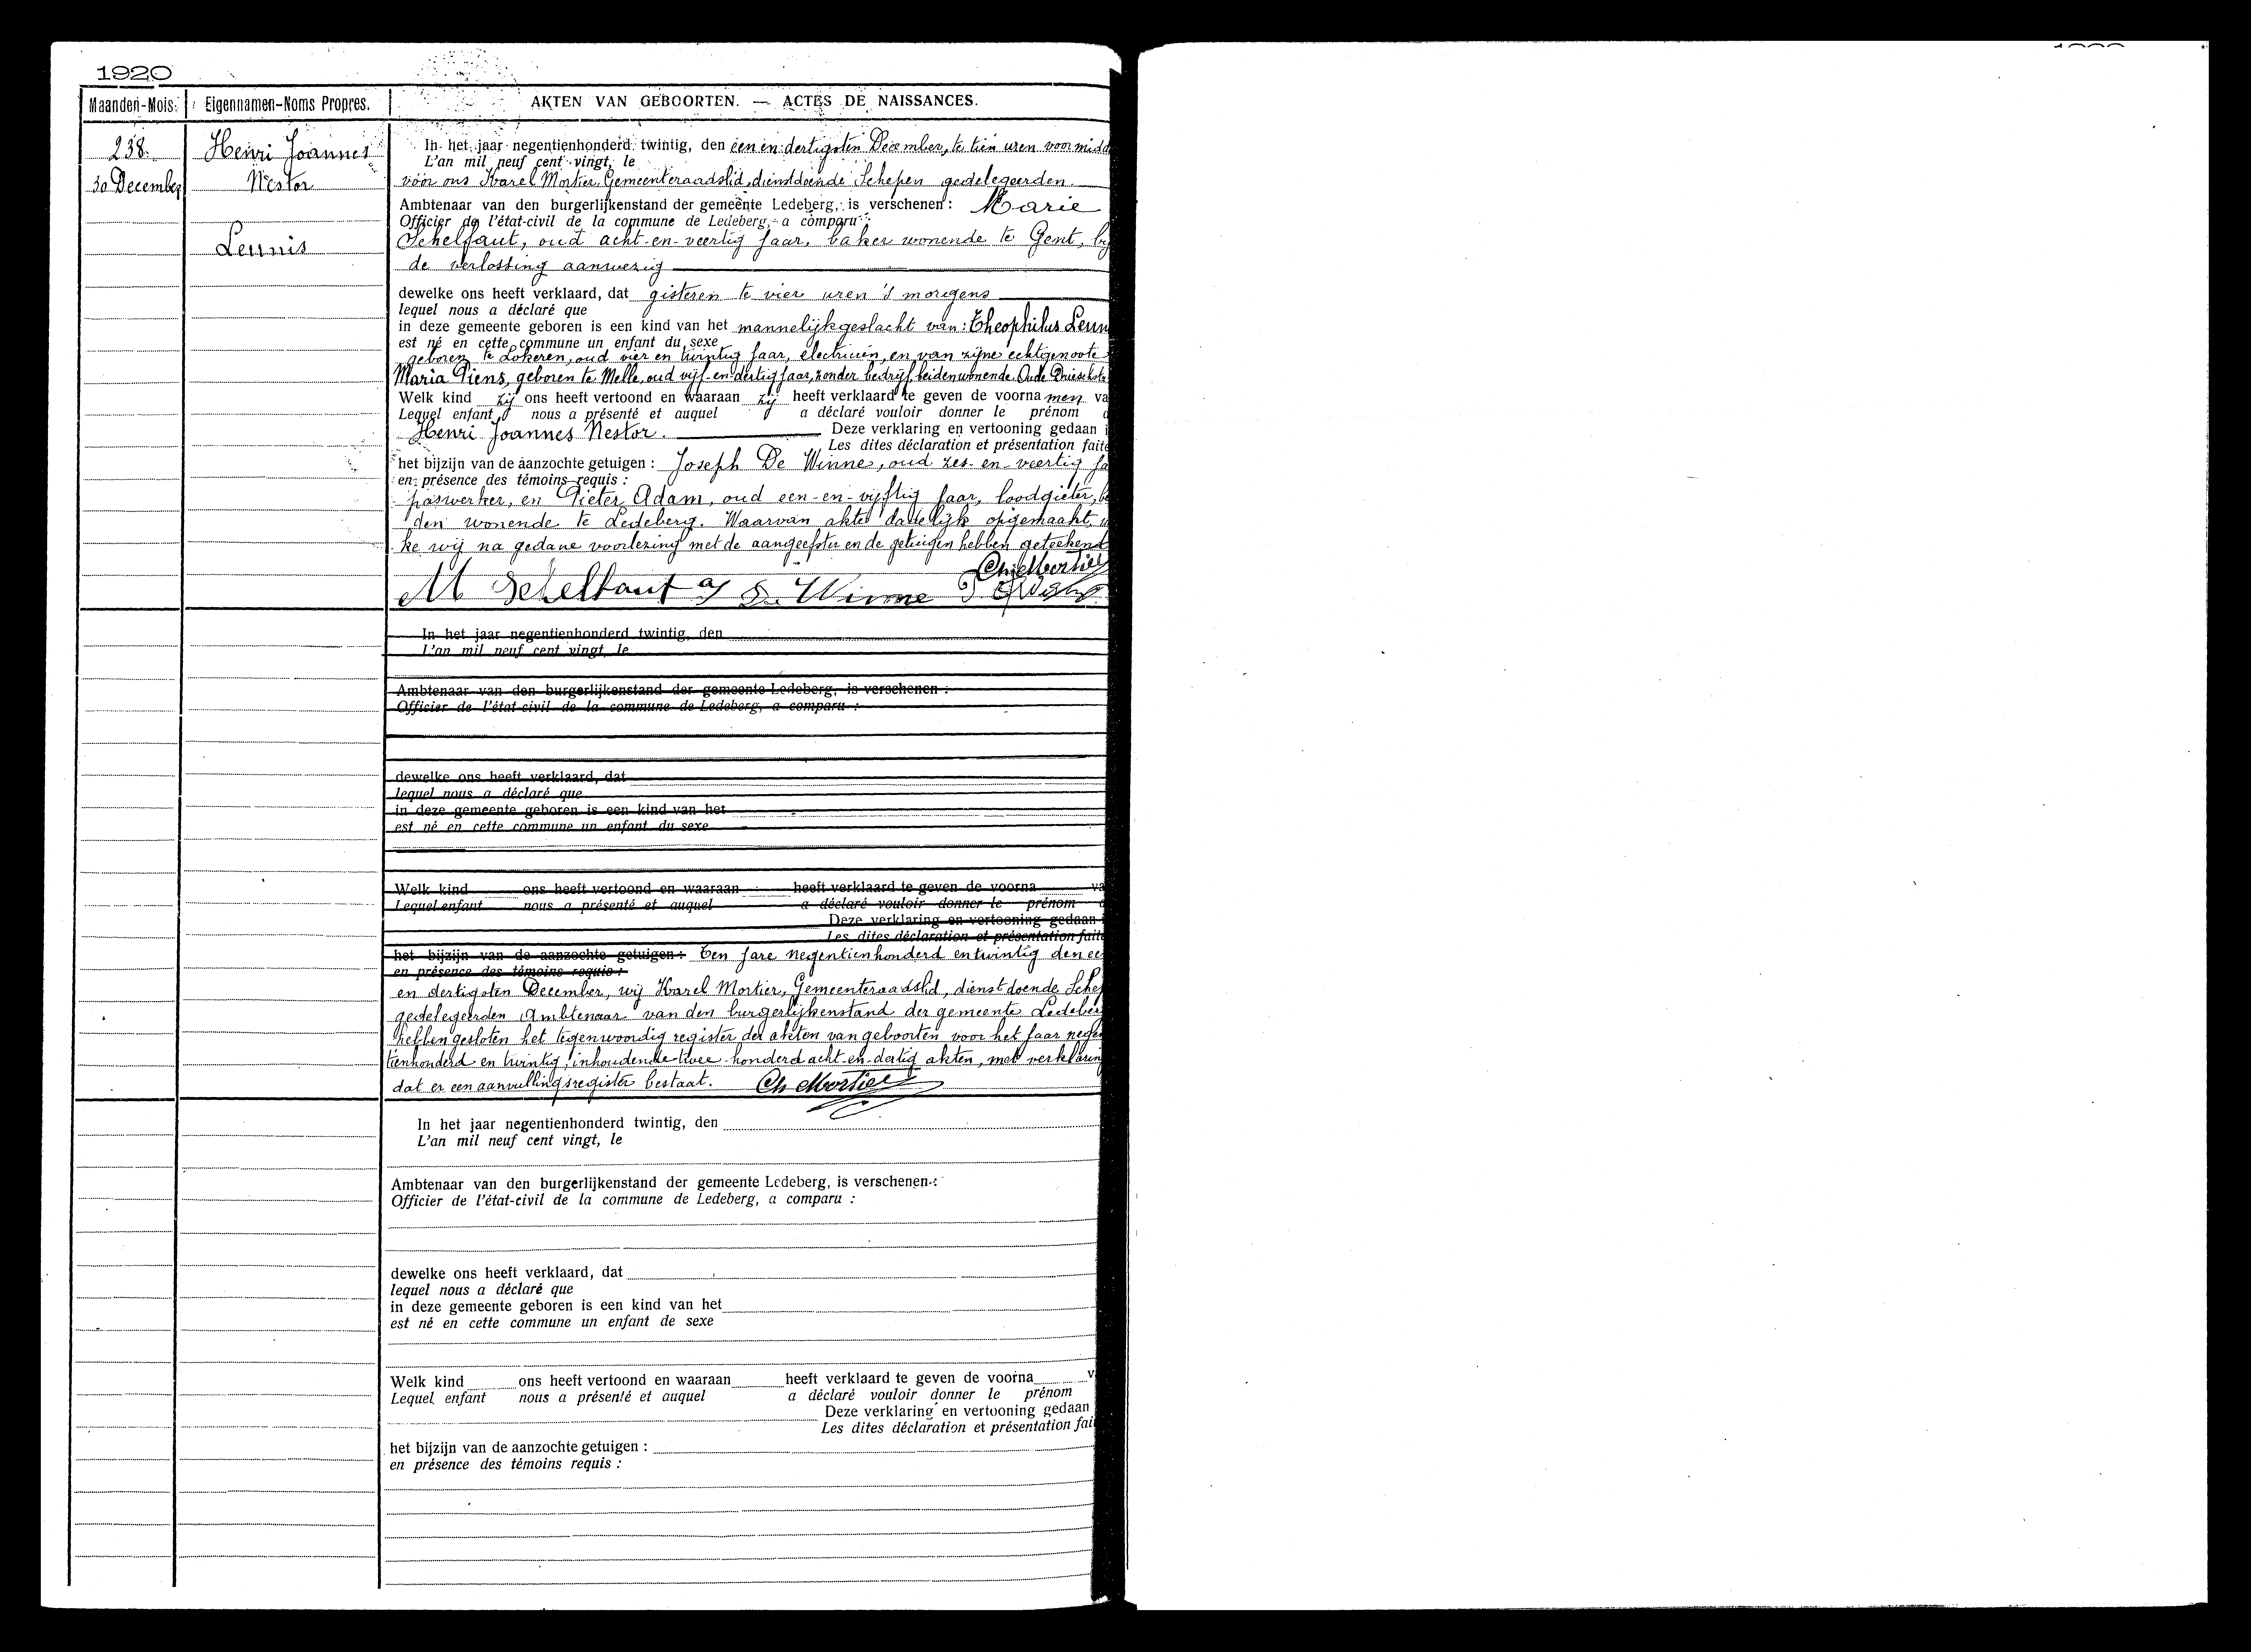 1920
Maanden-Mois. Eigennamen-Noms Propres. AKTEN VAN GEBOORTEN. — ACTES DE NAISSANCES.
238.
30 December
Henri Joannes
Nestor
Leunis
In het jaar negentienhonderd twintig, den een en dertigsten December, te tien uren voormidd
L'an mil neuf cent vingt, le
vóór ons Karel Mortier, Gemeenteraadslid, dienstdoende Schepen gedelegeerden
Ambtenaar van den burgerlijkenstand der gemeente Ledeberg, is verschenen : Marie
Officier de l'état-civil de la commune de Ledeberg, a comparu :
Schelfaut, oud acht-en-veertig jaar, baker wonende te Gent, bij
de verlossing aanwezig
dewelke ons heeft verklaard, dat gisteren te vier uren 's morgens
lequel nous a déclaré que
in deze gemeente geboren is een kind van het mannelijkgeslacht van : Theophilus Leun
est né en cette commune un enfant du sexe
geboren te Lokeren, oud vier en twintig jaar, electricien, en van zijne echtgenoote
Maria Piens, geboren te Melle, oud vijf-en-dertig jaar, zonder bedrijf, beiden wonende Oude
Welk kind zij ons heeft vertoond en waaraan zij heeft verklaard te geven de voornamen va
Lequel enfant nous a présenté et auquel a déclaré vouloir donner le prénom d
Henri Joannes Nestor. Deze verklaring en vertooning gedaan i
Les dites déclaration et présentation faite
het bijzijn van de aanzochte getuigen : Joseph De Winne, oud zes-en-veertig ja
en présence des témoins requis :
paswerker, en Pieter Adam, oud een-en-vijftig jaar, loodgieter, be
den wonende te Ledeberg. Waarvan akte dadelijk opgemaakt, w
ke wij na gedane voorlezing met de aangeefster en de getuigen hebben geteekend
Ch Mortier
M Schelfaut J De Winne P Adam
In het jaar negentienhonderd twintig, den
L'an mil neuf cent vingt, le
Ambtenaar van den burgerlijkenstand der gemeente Ledeberg, is verschenen :
Officier de l'état-civil de la commune de Ledeberg, a comparu :
dewelke ons heeft verklaard, dat
lequel nous a déclaré que
in deze gemeente geboren is een kind van het
est né en cette commune un enfant du sexe
Welk kind ons heeft vertoond en waaraan heeft verklaard te geven de voorna va
Lequel enfant nous a présenté et auquel a déclaré vouloir donner le prénom d
Deze verklaring en vertooning gedaan
Les dites déclaration et présentation faite
het bijzijn van de aanzochte getuigen : Ten jare negentienhonderd en twintig den ee
en présence des témoins requis :
en dertigsten December, wij Karel Mortier, Gemeenteraadslid, dienstdoende Schep
gedelegeerden Ambtenaar van den burgerlijkenstand der gemeente Ledeber
hebben gesloten het tegenwoordig register der akten van geboorten voor het jaar negen
tienhonderd en twintig, inhoudende twee-honderd acht-en-dertig akten, met verklaring
dat er een aanvullingsregister bestaat. Ch Mortier
In het jaar negentienhonderd twintig, den
L'an mil neuf cent vingt, le
Ambtenaar van den burgerlijkenstand der gemeente Ledeberg, is verschenen :
Officier de l'état-civil de la commune de Ledeberg, a comparu :
dewelke ons heeft verklaard, dat
lequel nous a déclaré que
in deze gemeente geboren is een kind van het
est né en cette commune un enfant de sexe
Welk kind ons heeft vertoond en waaraan heeft verklaard te geven de voorna v
Lequel enfant nous a présenté et auquel a déclaré vouloir donner le prénom
Deze verklaring en vertooning gedaan
Les dites déclaration et présentation fai
het bijzijn van de aanzochte getuigen :
en présence des témoins requis :